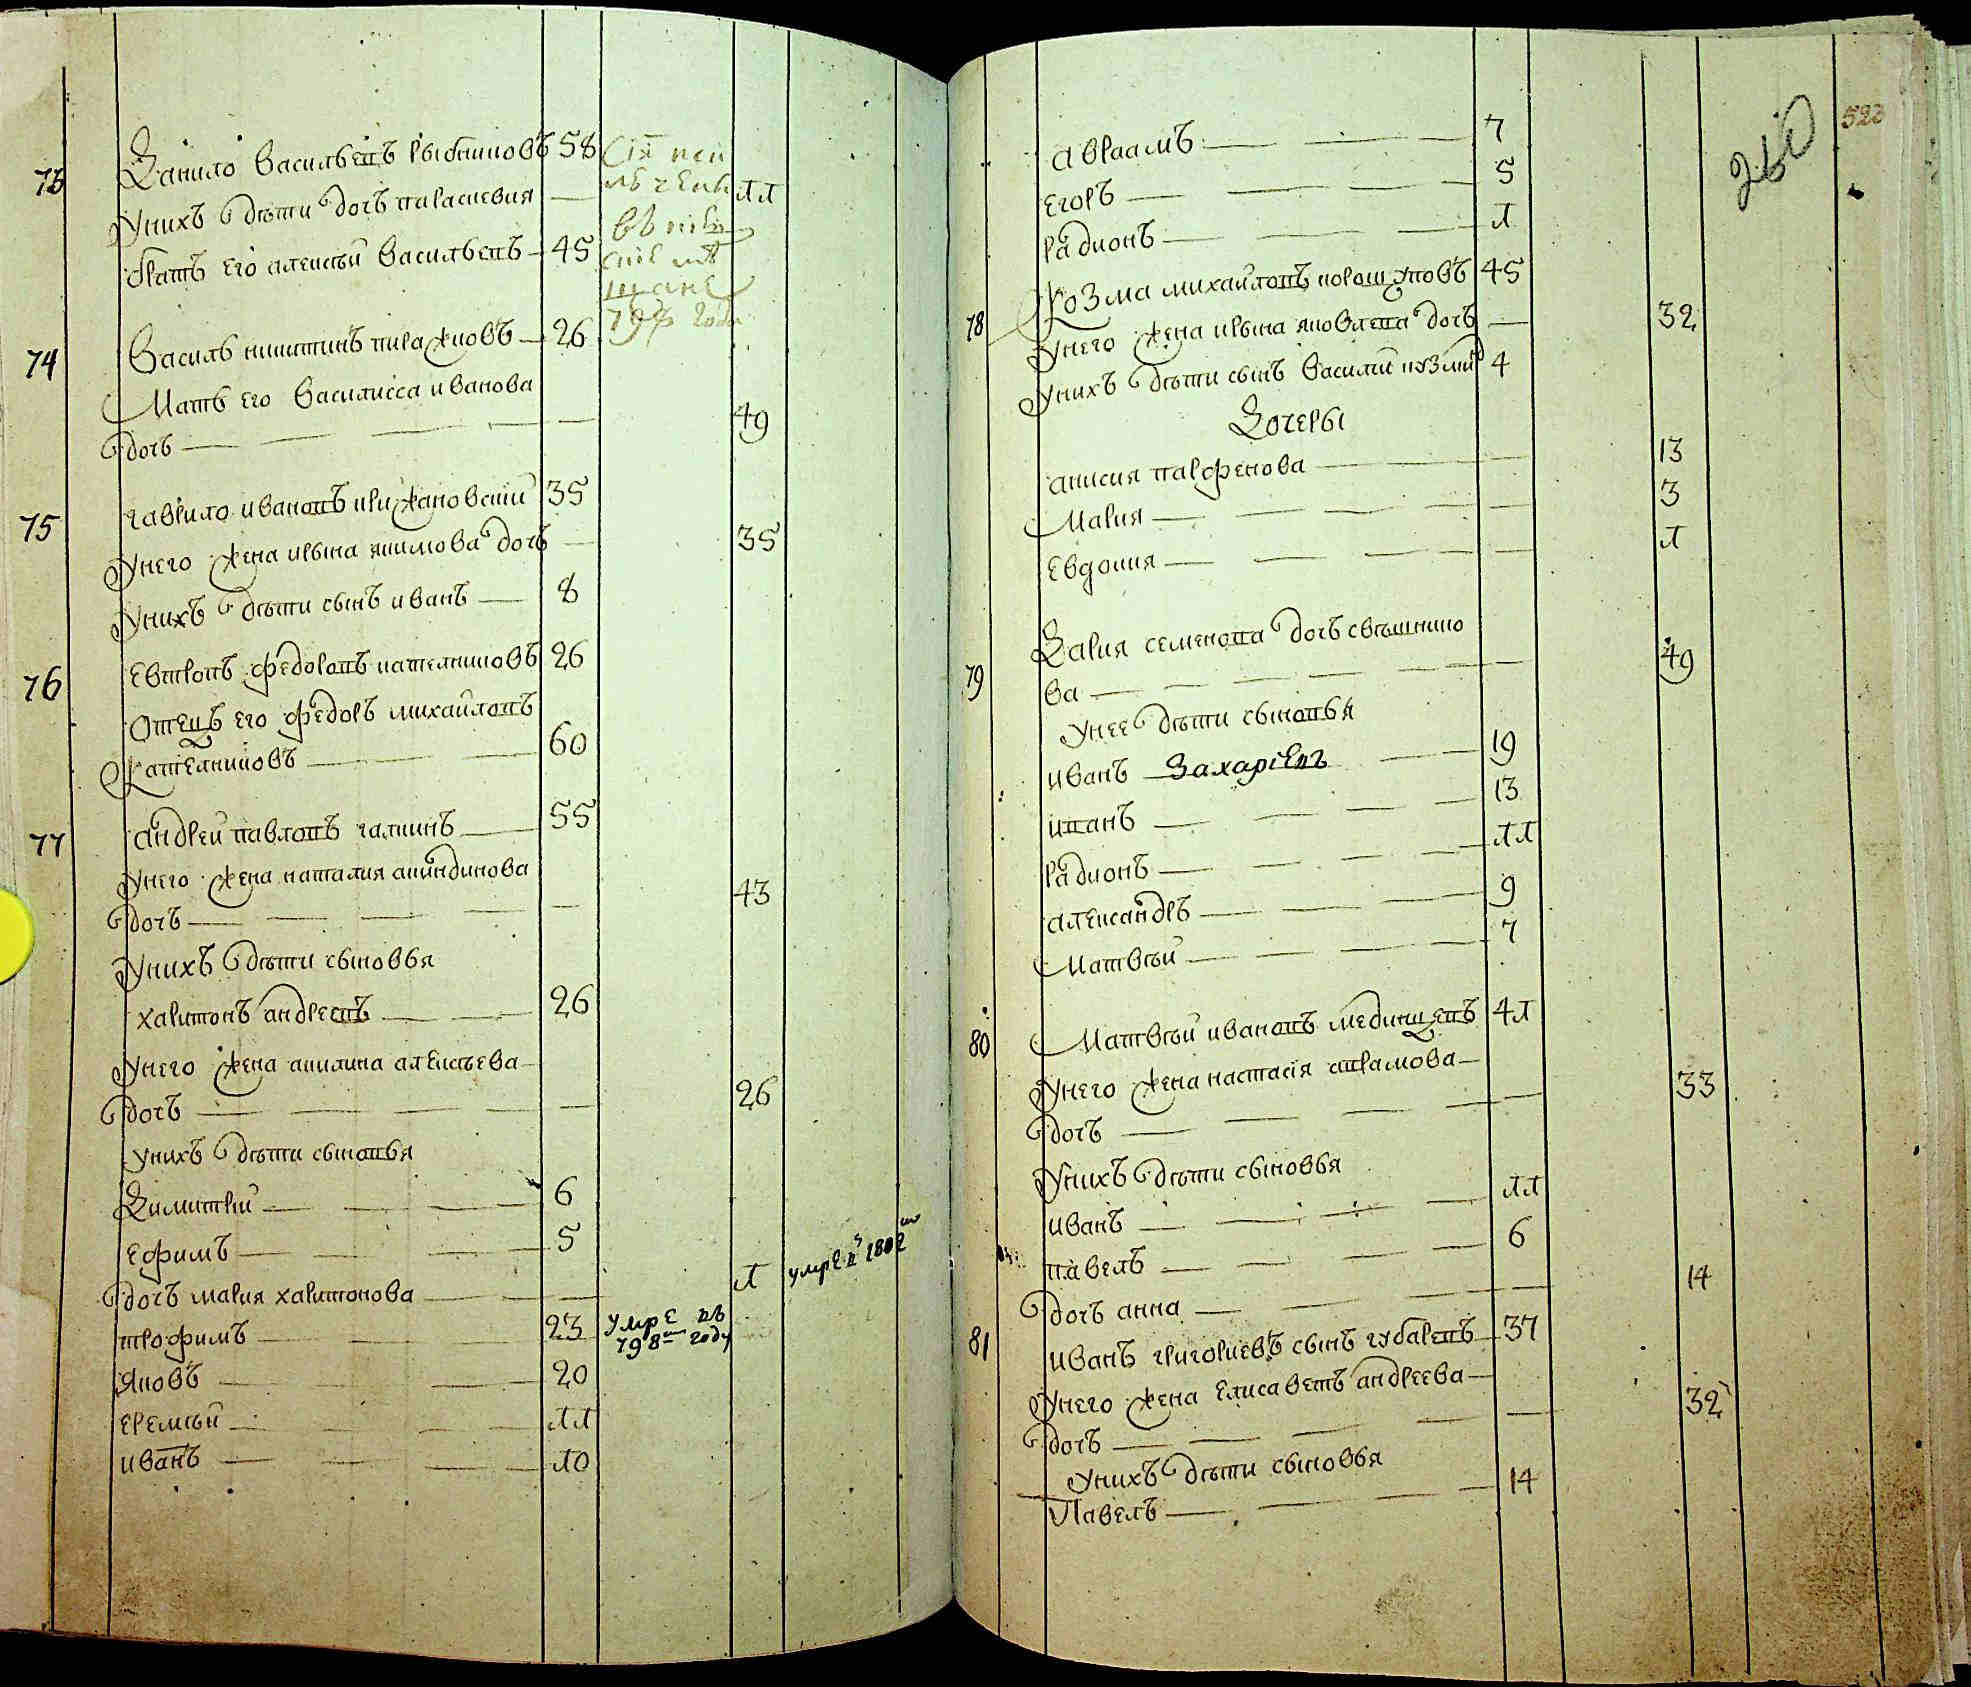 73 Данило Васильевъ Рыбаниковъ 58
Унихъ дѣти дочь параскевия — 11
братъ его алексѣй Васильевъ — 45
794 году
74 Василь никитинъ пиражковъ — 26
Мать его Василисса иванова
дочь — 49
75 гаврило ивановъ кржановский 35
Унего жена ирына якимова дочь — 35
Унихъ дѣти сынъ иванъ — 8
76 Евтропъ федоровъ кателниковъ 26
Отецъ его федоръ михайловъ
Кателниковъ — 60
77 андрей павловъ галкинъ — 55
Унего жена наталия акиндинова
дочь — 43
Унихъ дѣти сыновья
харитонъ андреевъ — 26
Унего жена акилина алексѣева —
дочь — 26
Унихъ дѣти сыновья
Димитрий — 6
Ефимъ — 5
дочь мария харитонова — 1 умре в 1802
трофимъ — 23 умре въ
798м году
Яковъ — 20
еремѣй — 11
иванъ — 10
520
авраамъ — 7
Егоръ — 5
радионъ — 1
78 Козма михайловъ порошуновъ 45
Унего жена ирына яковлева дочь — 32
Унихъ дѣти сынъ Василий козмин 4
Дочеры
анисия парфенова — 13
Мария — 3
Евдокия — 1
79 Дария семенова дочь свѣшнико
ва — 49
Унее дѣти сыновья
иванъ Захаріевъ — 19
иванъ — 13
радионъ — 11
александръ — 9
Матвѣй — 7
80 Матвѣй ивановъ мединцевъ 41
Унего жена настасія аврамова —
дочь — 33
Унихъ дѣти сыновья
иванъ — 11
павелъ — 6
дочь анна — 14
81 иванъ григориевъ сынъ губаревъ — 37
Унего жена Елисаветъ андреева —
дочь — 32
Унихъ дѣти сыновья
Павелъ — 14